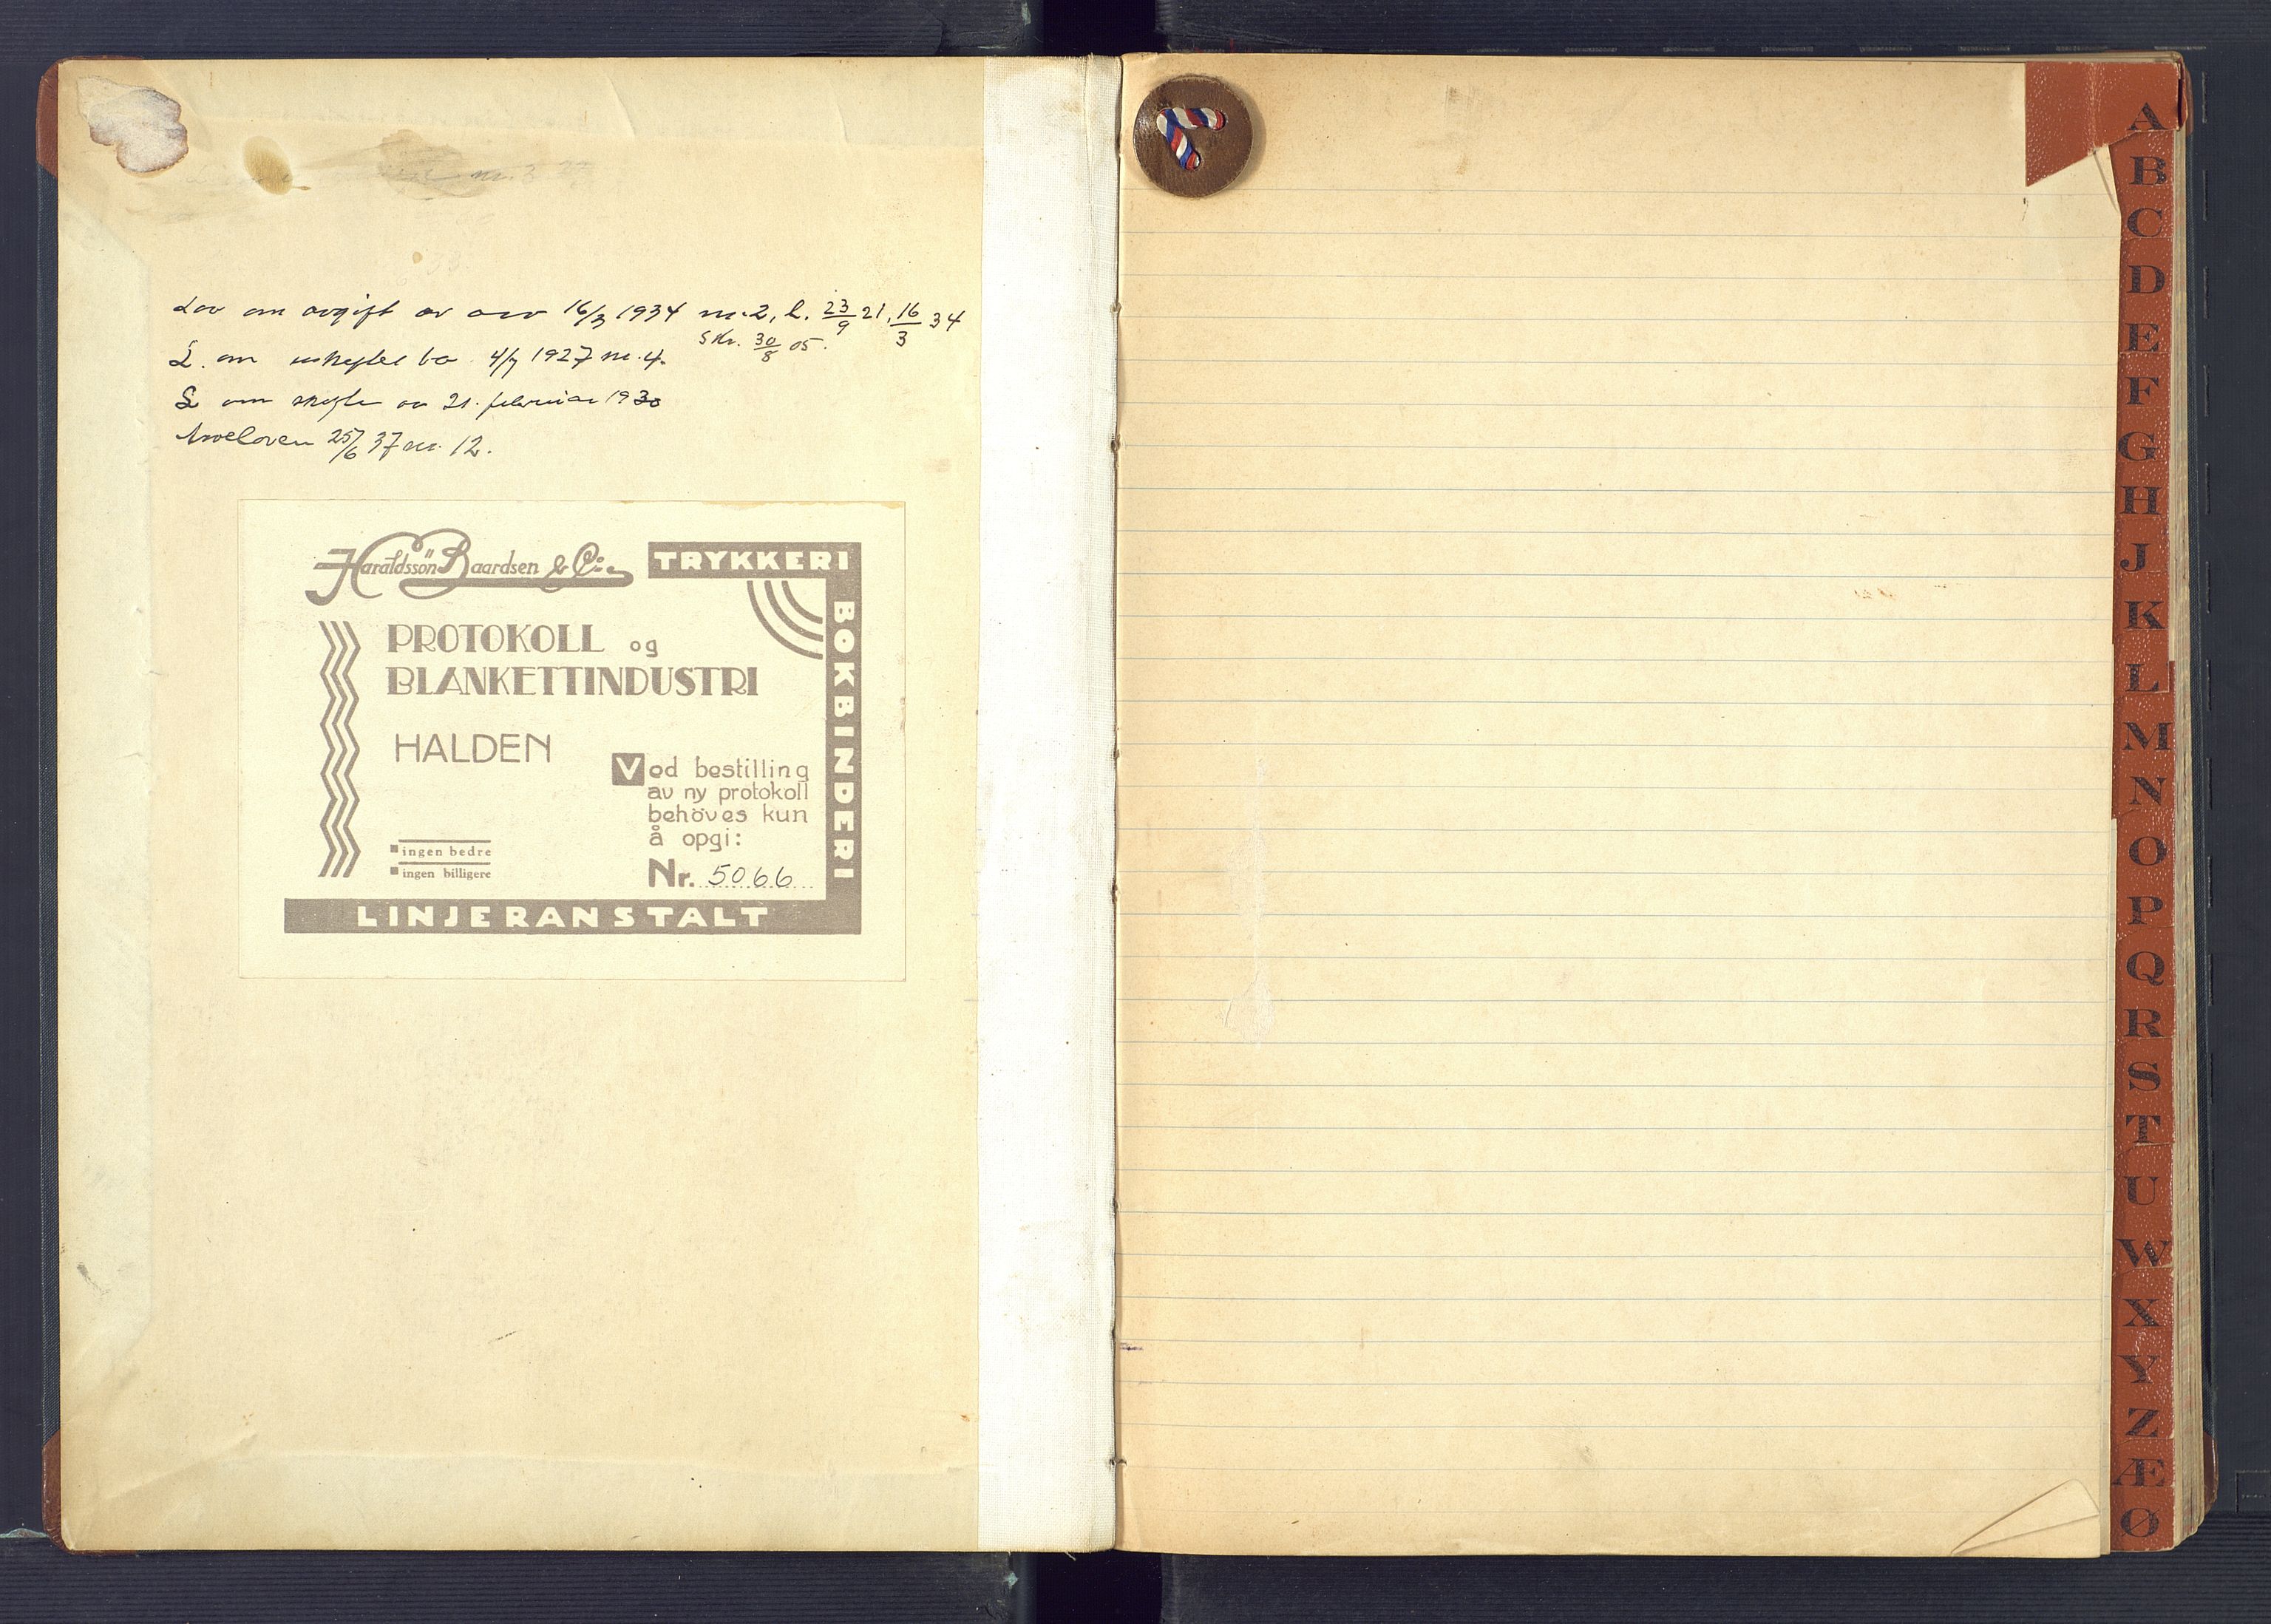 Lov om avgift av arv 16/3 1934 nr. 2, l. 23/9 21, 16/3 34
Skr. 30/8 05.
L. om uskiftet bo 4/7 1927 nr. 4.
L om skifte av 21. februar 1930
Arveloven 25/6 37 nr. 12.
Haraldssön Baardsen & Co.
TRYKKERI
BOKBINDERI
LINJERANSTALT
PROTOKOLL og
BLANKETTINDUSTRI
HALDEN
Ved bestilling
av ny protokoll
behöves kun
å opgi:
Nr. 5066
ingen bedre
ingen billigere
A
B
C
D
E
F
G
H
J
K
L
M
N
O
P
Q
R
S
T
U
W
X
Y
Z
Æ
Ø